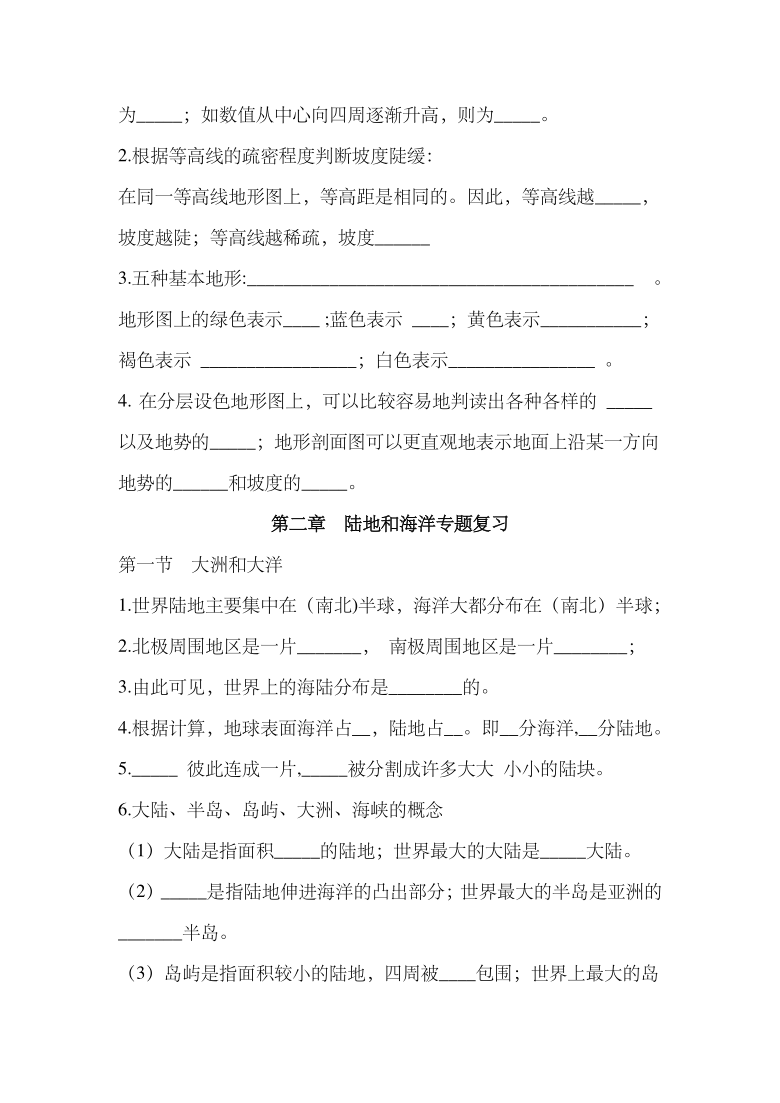 为_____；如数值从中心向四周逐渐升高，则为_____。
2.根据等高线的疏密程度判断坡度陡缓：
在同一等高线地形图上，等高距是相同的。因此，等高线越_____，
坡度越陡；等高线越稀疏，坡度______
3.五种基本地形:__________________________________________ 。
地形图上的绿色表示____ ;蓝色表示 ____；黄色表示___________；
褐色表示 _________________；白色表示________________ 。
4. 在分层设色地形图上，可以比较容易地判读出各种各样的 _____
以及地势的_____；地形剖面图可以更直观地表示地面上沿某一方向
地势的______和坡度的_____。
第二章 陆地和海洋专题复习
第一节 大洲和大洋
1.世界陆地主要集中在（南北)半球，海洋大都分布在（南北）半球；
2.北极周围地区是一片_______， 南极周围地区是一片________；
3.由此可见，世界上的海陆分布是________的。
4.根据计算，地球表面海洋占__，陆地占__。即__分海洋,__分陆地。
5._____ 彼此连成一片,_____被分割成许多大大 小小的陆块。
6.大陆、半岛、岛屿、大洲、海峡的概念
（1）大陆是指面积_____的陆地；世界最大的大陆是_____大陆。
（2）_____是指陆地伸进海洋的凸出部分；世界最大的半岛是亚洲的
_______半岛。
（3）岛屿是指面积较小的陆地，四周被____包围；世界上最大的岛